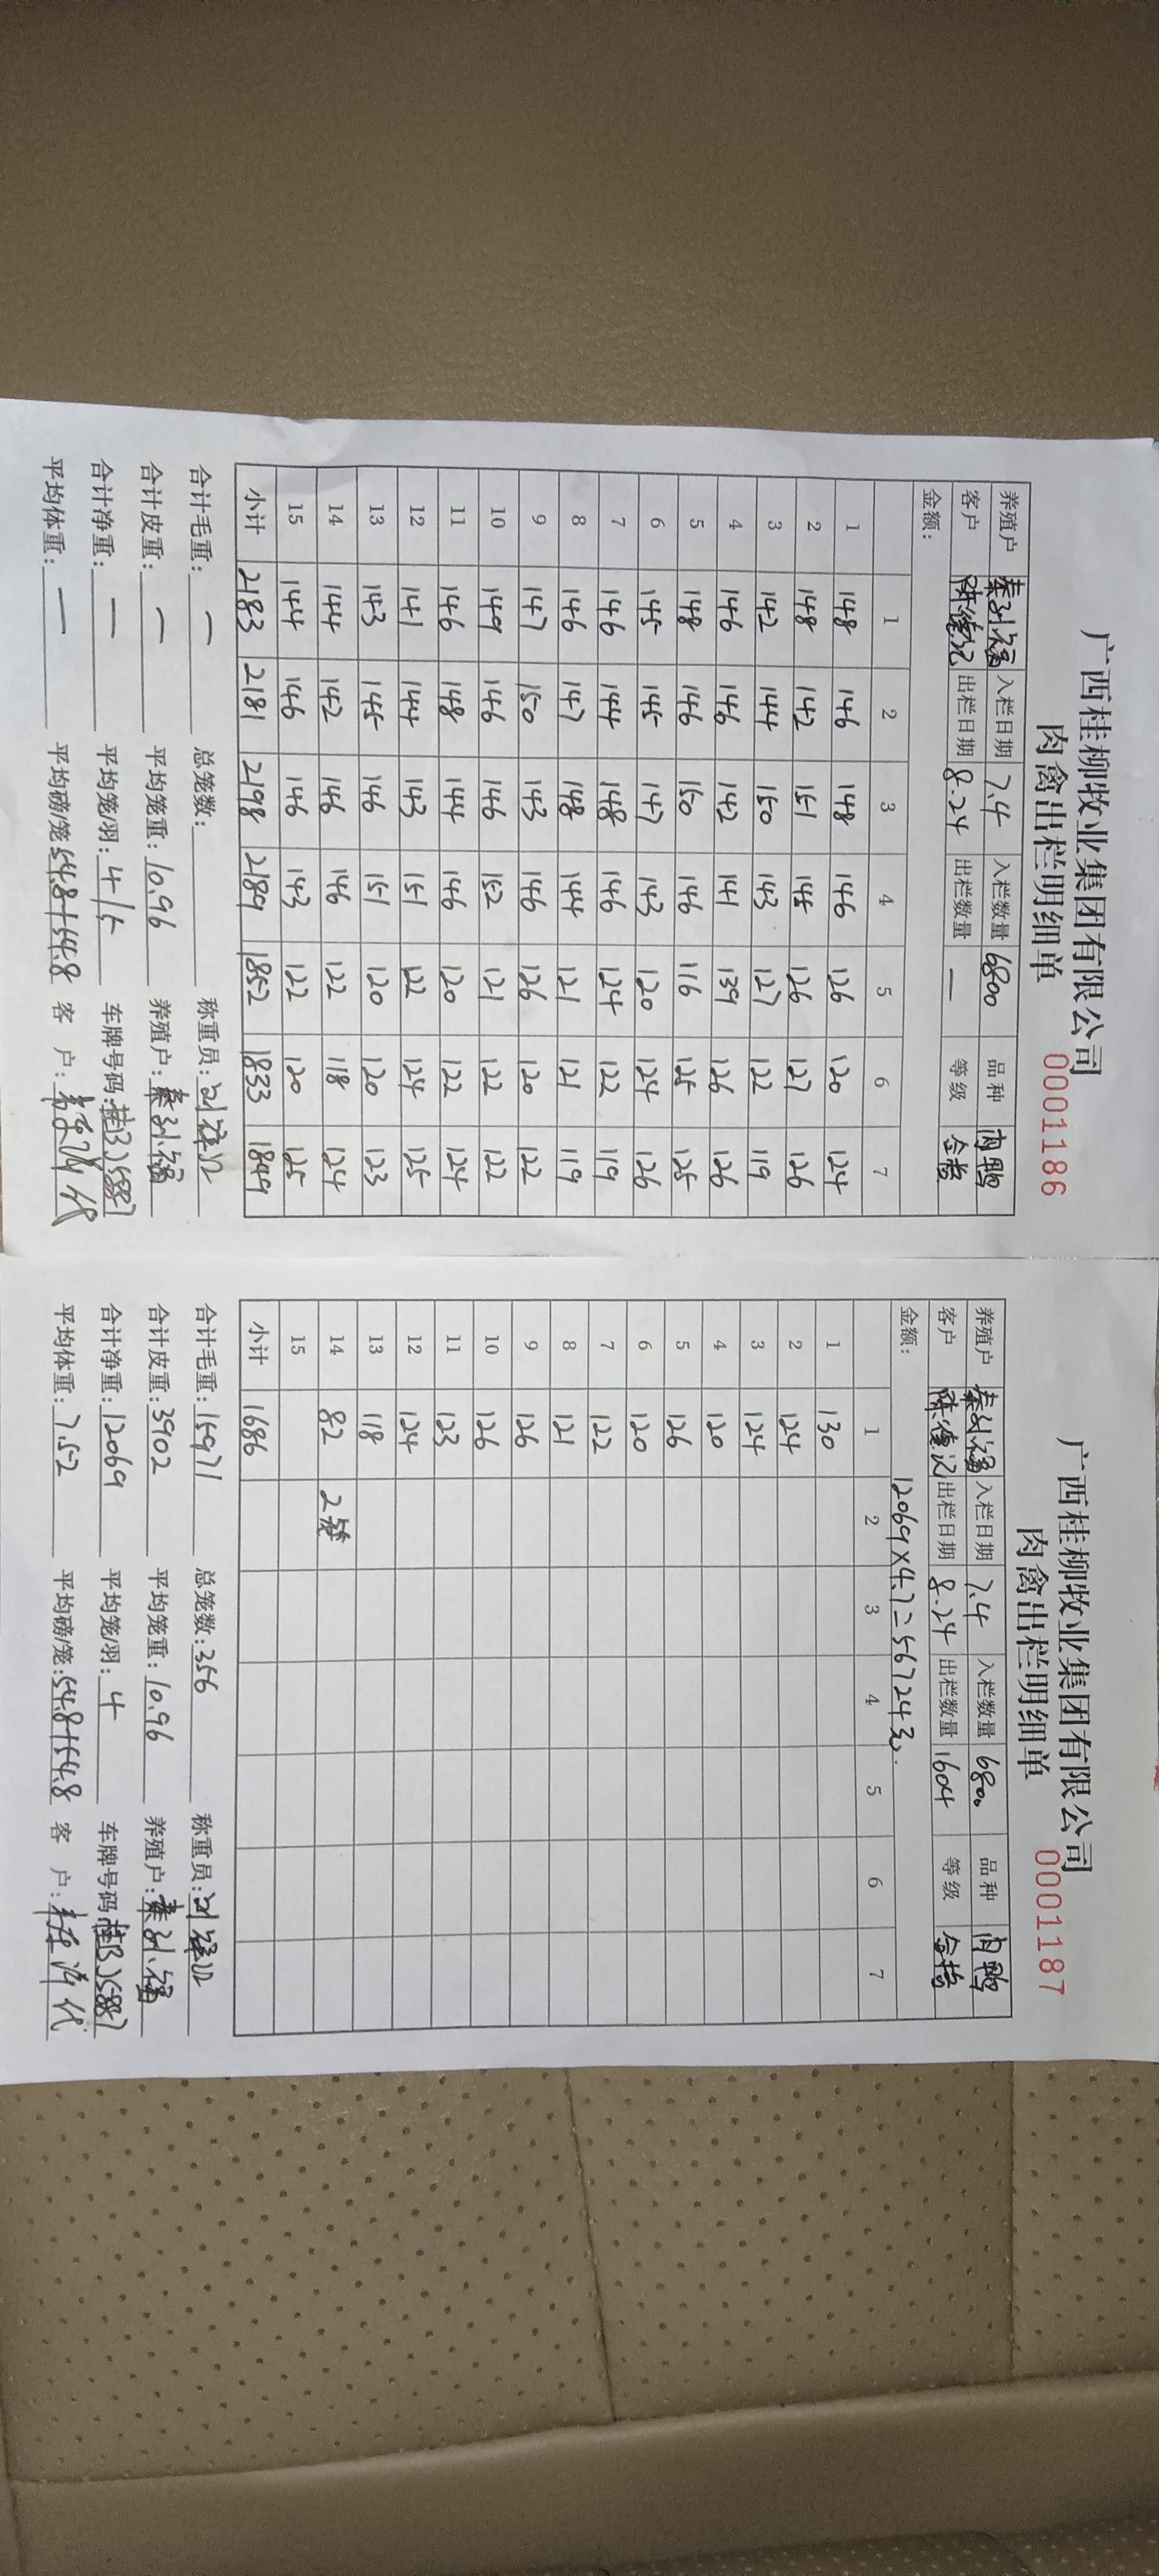 广西桂柳牧业集团有限公司
肉禽出栏明细单 0001186
养殖户 秦孙福 入栏日期 7.4 入栏数量 6800 品种 肉鸭
客户 出栏日期 8.24 出栏数量 — 等级
金额:
1 2 3 4 5 6 7
1 148 146 148 146 126 120 124
2 148 142 151 145 126 127 126
3 142 144 150 143 127 122 119
4 146 146 142 141 139 126 126
5 148 146 150 146 116 125 125
6 145 145 147 143 120 124 126
7 146 144 148 146 124 122 119
8 146 147 148 144 121 121 119
9 147 150 143 146 126 120 122
10 149 146 146 152 121 122 122
11 146 148 144 146 120 122 124
12 141 144 143 151 122 124 125
13 143 145 146 151 120 120 123
14 144 142 146 146 122 118 124
15 144 146 146 143 122 120 125
小计 2183 2181 2198 2189 1852 1833 1849
合计毛重: — 总笼数: 称重员:
合计皮重: — 平均笼重: 10.96 养殖户: 秦孙福
合计净重: — 平均笼/羽: 4/5 车牌号码:
平均体重: — 平均磅/笼: 54.8+54.8 客 户:
广西桂柳牧业集团有限公司
肉禽出栏明细单 0001187
养殖户 秦孙福 入栏日期 7.4 入栏数量 6800 品种 肉鸭
客户 出栏日期 8.24 出栏数量 1604 等级
金额: 12069×4.7=56724元.
1 2 3 4 5 6 7
1 130
2 124
3 124
4 120
5 126
6 120
7 122
8 121
9 126
10 126
11 123
12 124
13 118
14 82 2笼
15
小计 1686
合计毛重: 15971 总笼数: 356 称重员:
合计皮重: 3902 平均笼重: 10.96 养殖户: 秦孙福
合计净重: 12069 平均笼/羽: 4 车牌号码:
平均体重: 7.52 平均磅/笼: 54.8+54.8 客 户: